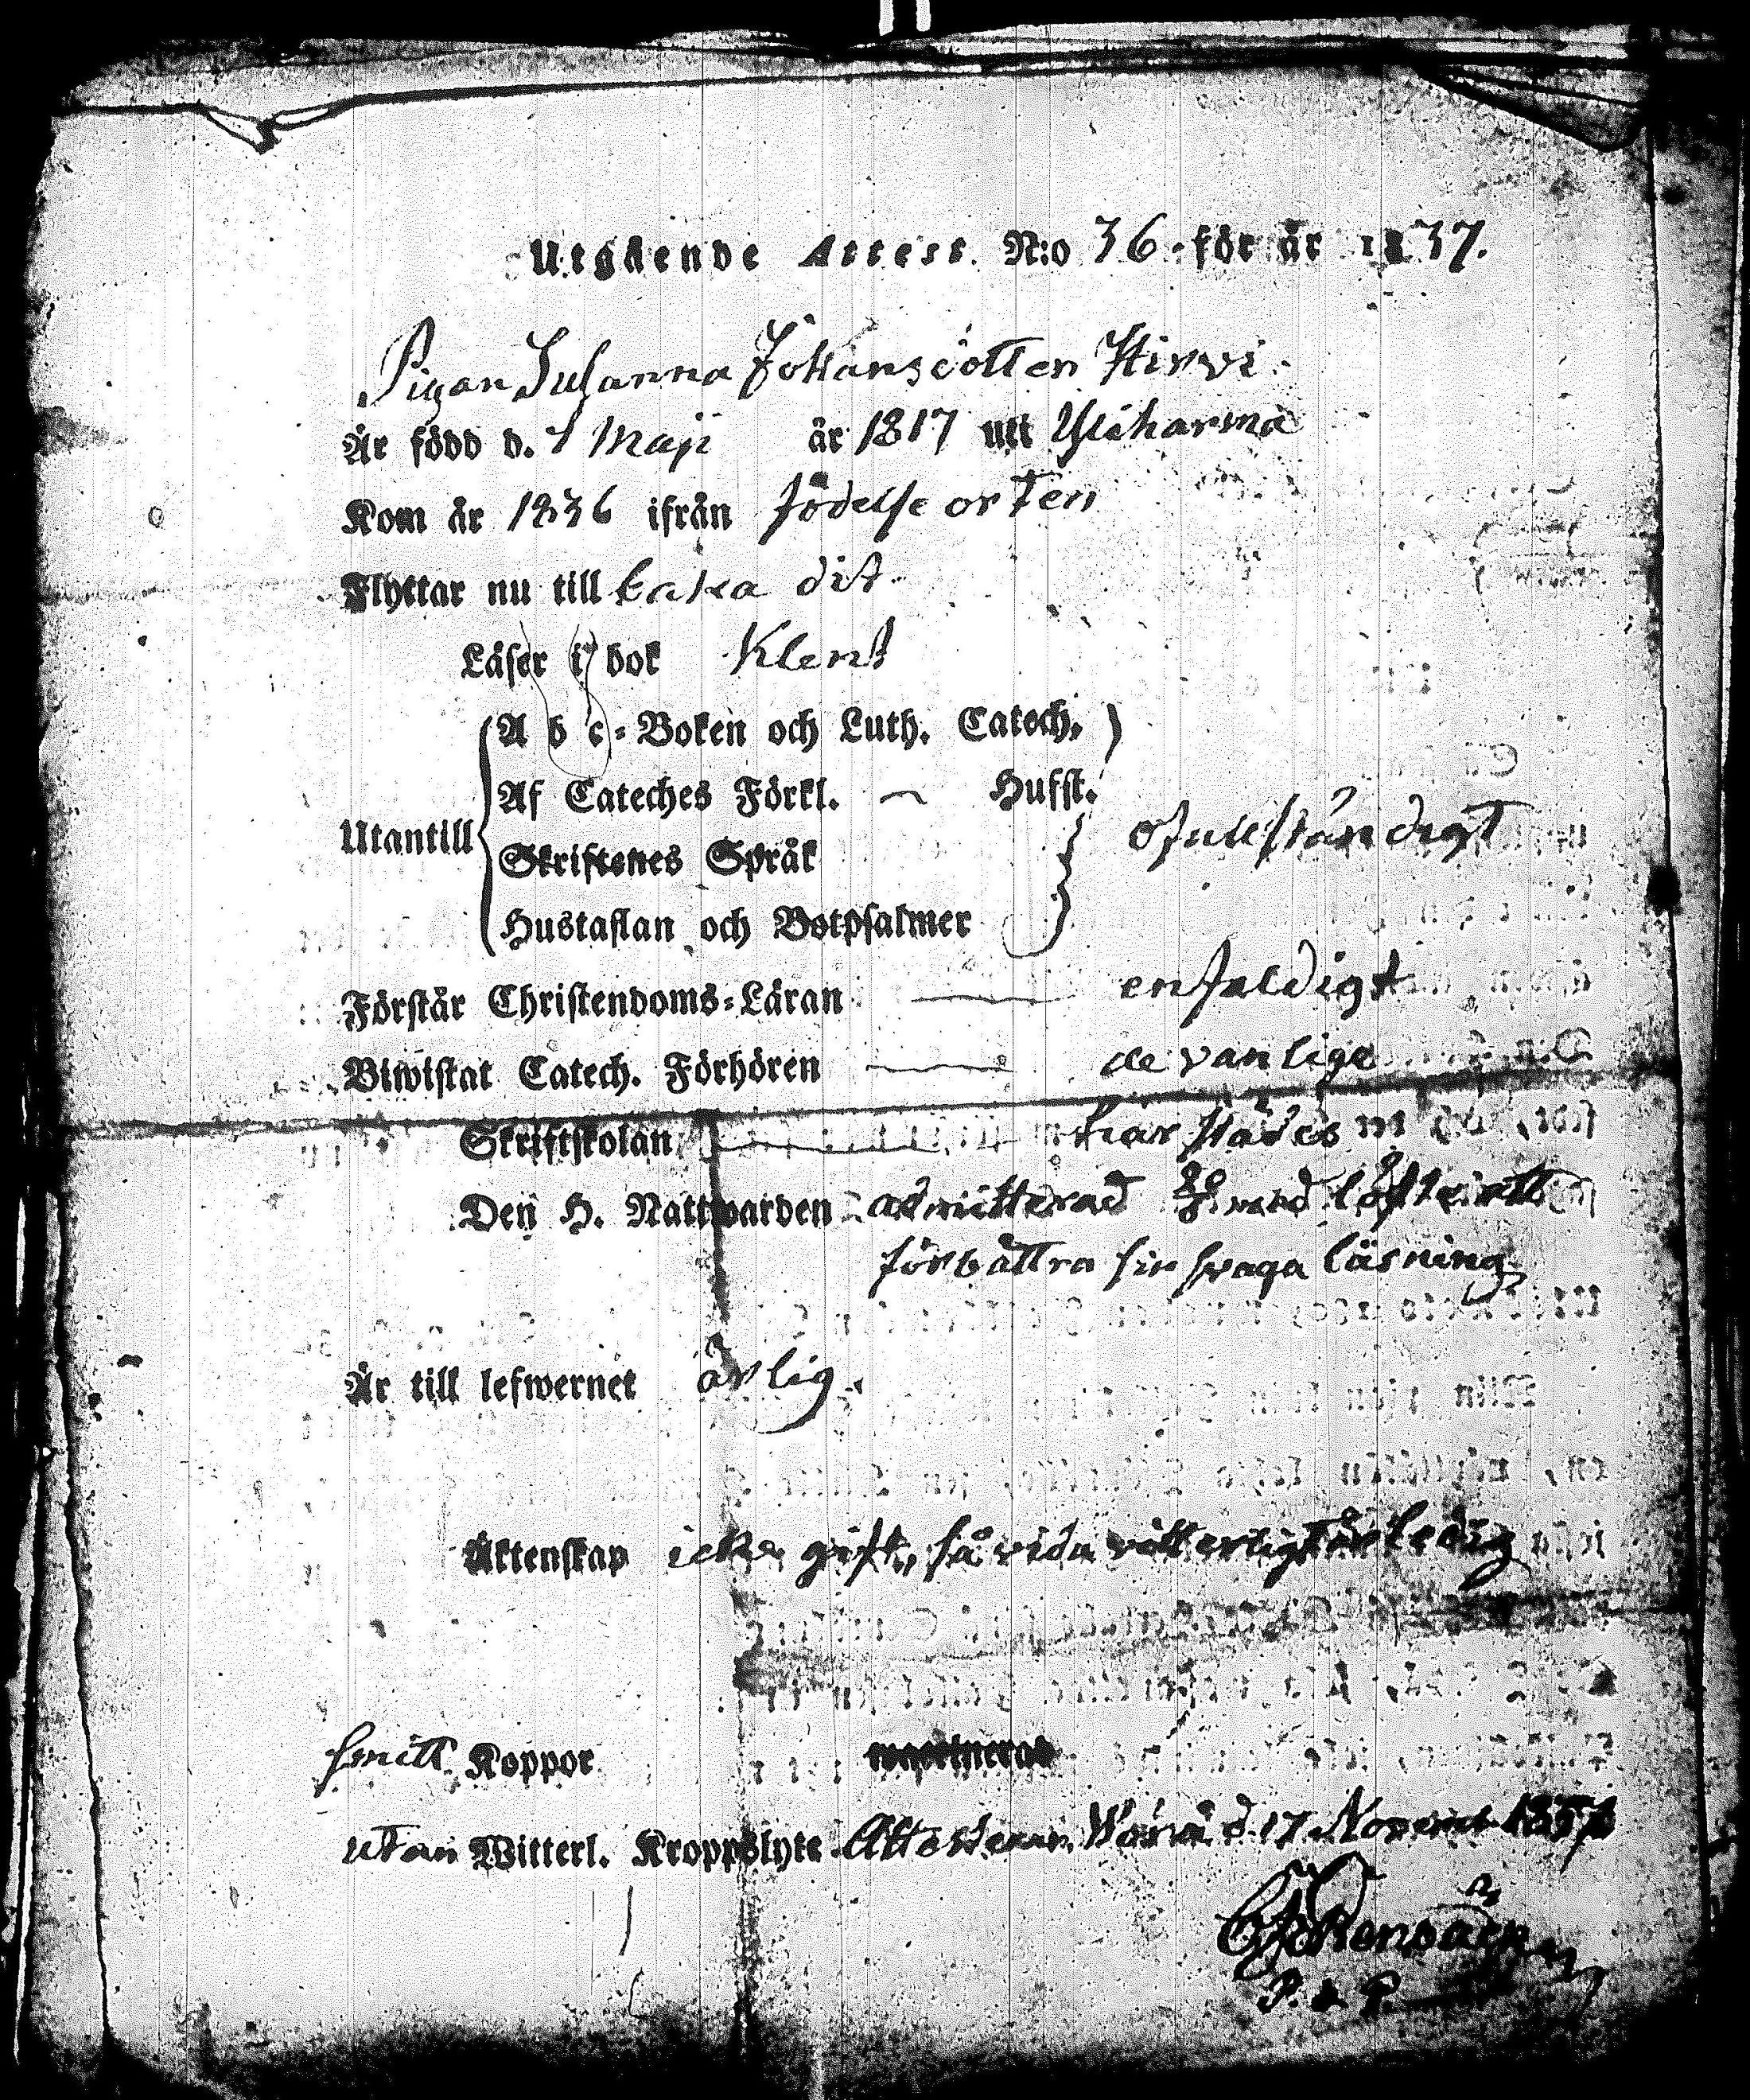 Utgående Attest N:o 36 för år 1837.
Pigan Susanna Johansdotter Hirvi.
Är född d. 1 Maji år 1817 uti Ylihärmä
Kom år 1836 ifrån födelse orten
Flyttar nu till baka dit
Läser i bok Klent
A b c-Boken och Luth. Catech.
Af Cateches Förkl. Hufst.
Utantill ofullständigt
Skriftenes Språk
Hustaflan och Botpsalmer
Förstår Christendoms-Läran enfaldigt
Biwistat Catech. Förhören de vanliga
Skriftskolan härstädes
Den H. Nattwarden admitterad med löfte att
förbättra sin swaga läsning
Är till lefwernet ärlig.
Äktenskap icke gift, så vida vitterligt är ledig
haft Koppor
utan Witterl. Kroppslyte Attesterar, Vörå d. 17 Novemb. 1837
P. &